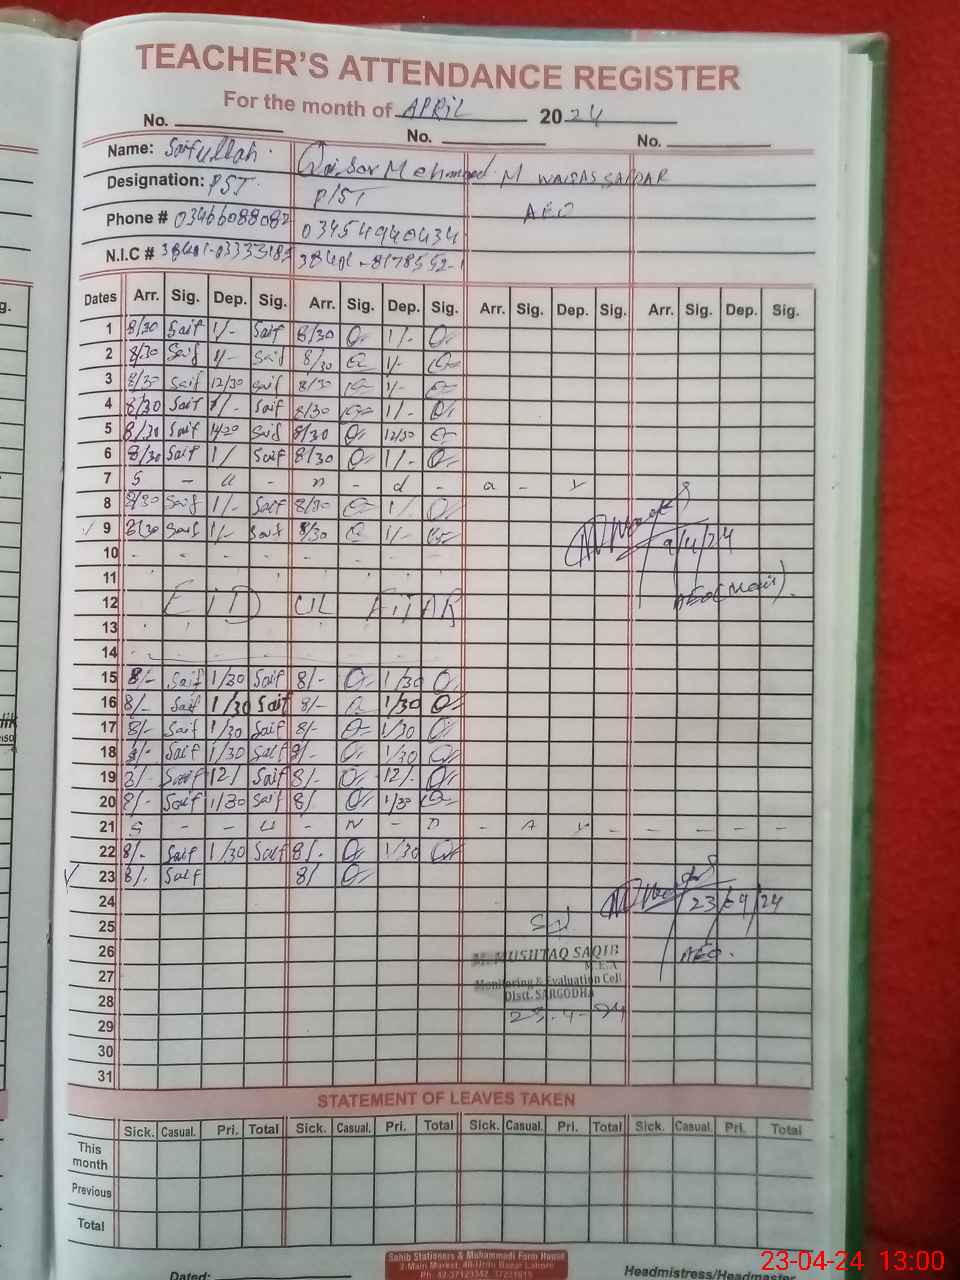 TEACHER'S ATTENDANCE REGISTER
For the month of APRIL 2024
No. No. No.
Name: Saifullah. Qaisar Mehmood M WAQAS SAFDAR
Designation: PST. PST AEO
Phone # 03466088082 03454940434
N.I.C # 38401-0333318 38401-8178552-1
Dates Arr. Sig. Dep. Sig. Arr. Sig. Dep. Sig. Arr. Sig. Dep. Sig. Arr. Sig. Dep. Sig.
1 8/30 Saif 1/- Saif 8/30 1/-
2 8/30 Saif 1/- Saif 8/30 1/-
3 8/30 Saif 12/30 Saif 8/30 1/-
4 8/30 Saif 1/- Saif 8/30 1/-
5 8/30 Saif Saif 8/30 12/30
6 8/30 Saif 1/ Saif 8/30 1/-
7 S - u - n - d - a - y
8 8/30 Saif 1/- Saif 8/30 1/-
9 8/30 Saif 1/- Saif 8/30 1/- 9/4/24
10
11
12 EID UL FITAR
13
14
15 8/- Saif 1/30 Saif 8/- 1/30
16 8/- Saif 1/30 Saif 8/- 1/30
17 8/- Saif 1/30 Saif 8/- 1/30
18 8/- Saif 1/30 Saif 8/- 1/30
19 8/- Saif 12/ Saif 8/- 12/-
20 8/- Saif 1/30 Saif 8/ 1/30
21 S - - U - N - D - A - y - - - -
22 8/- Saif 1/30 Saif 8/- 1/30
23 8/- Saif 8/
24 23/04/24
25
26 M. MUSHTAQ SAQIB AEO.
M.E.A
27 Monitoring & Evaluation Cell
28 Distt. SARGODHA
29 23-4-24
30
31
STATEMENT OF LEAVES TAKEN
Sick. Casual. Pri. Total Sick. Casual. Pri. Total Sick. Casual. Pri. Total Sick. Casual. Pri. Total
This month
Previous
Total
Sahib Stationers & Muhammadi Form House
2-Main Market, 40-Urdu Bazar Lahore
Dated: Headmistress/Headmaster
23-04-24 13:00